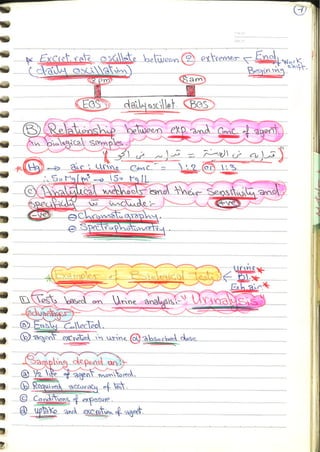 7
* Excret. rate oscillate between ② extremes End of work shift.
(daily oscillation) Beginning
2pm 8am
EOS daily oscillat. BOS
Ⓑ Relationship between exp. and conc. of agent
in biological samples.
Hg → air : urine conc. = 1:2 or 1:3
Ⓒ Analytical methods and their sensitivity and
specificity include:- +ve
-ve ① Chromatography.
② Spectrophotometry.
Examples of Biological Tests Urine
Bl.
Exh. air
① Tests based on Urine analysis:- "Urinalysis"
advantages
ⓐ Easily collected.
ⓑ agent excreted in urine α absorbed dose
Sampling depend on:
ⓐ ½ life of agent monitored.
ⓑ Required accuracy of test.
ⓒ Conditions of exposure.
ⓓ uptake and excretion of agent.